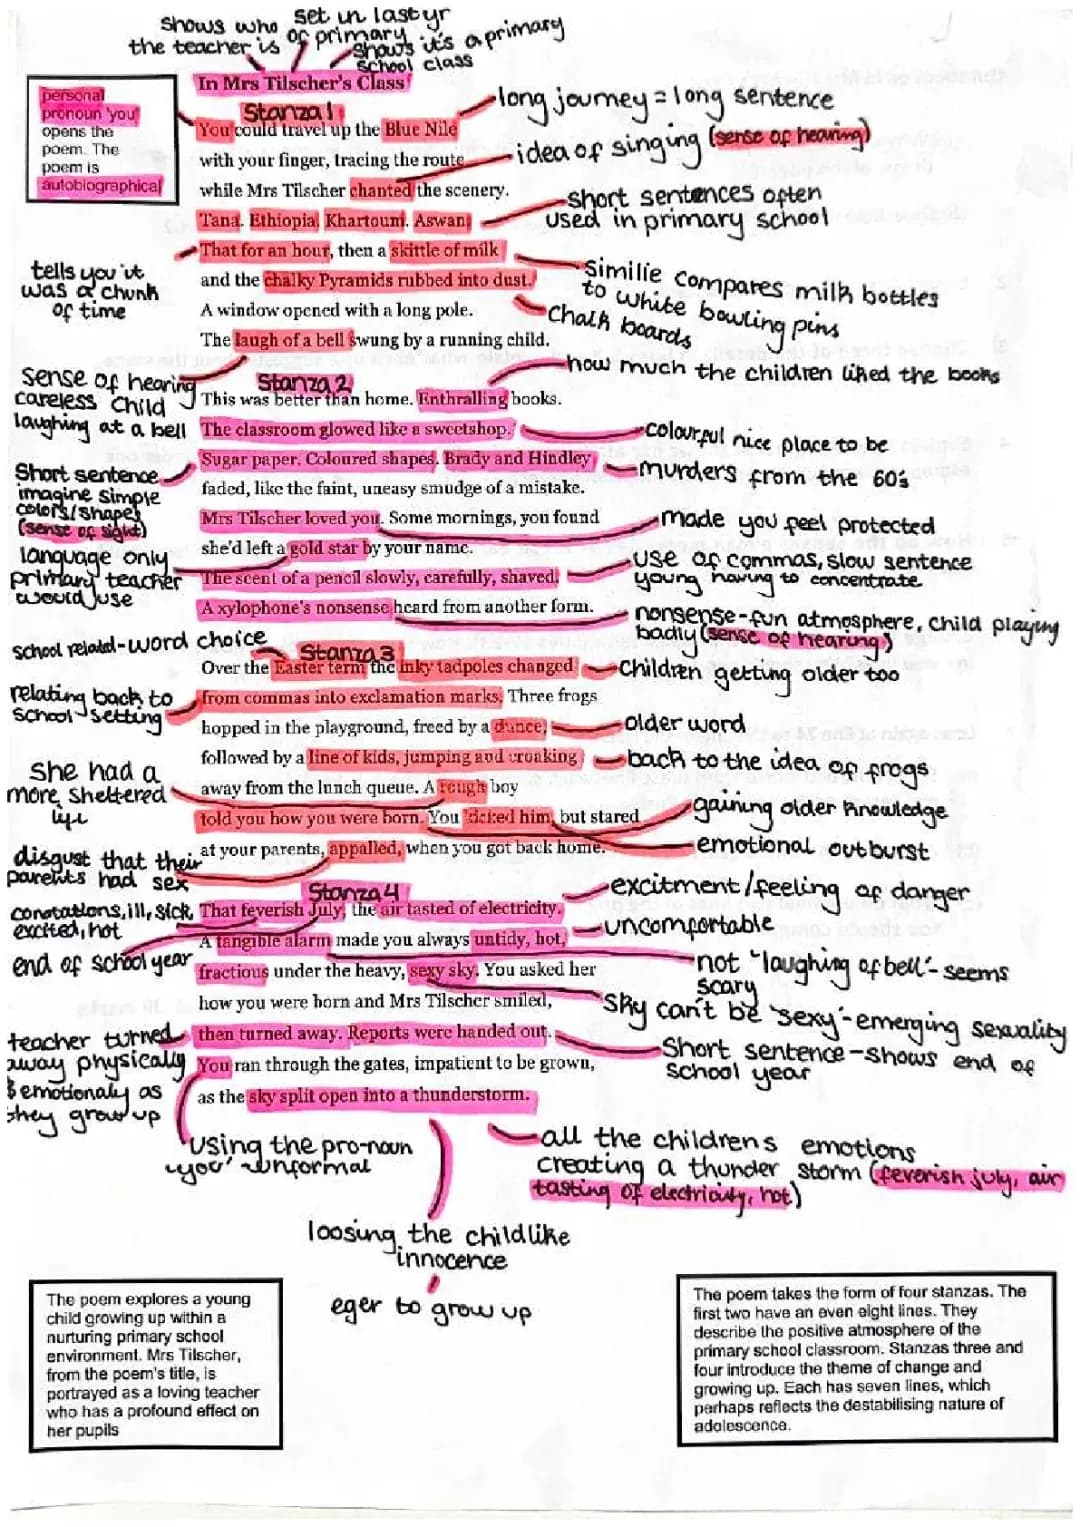 shows who
the teacher is
set in last yr
of primary
shows it's a primary
school class
In Mrs Tilscher's Class
personal
pronoun 'you'
opens the
poem. The
poem is
autobiographical
Stanza 1
You could travel up the Blue Nile
with your finger, tracing the route
while Mrs Tilscher chanted the scenery.
Tana. Ethiopia. Khartoum. Aswan.
That for an hour, then a skittle of milk
and the chalky Pyramids rubbed into dust.
A window opened with a long pole.
The laugh of a bell swung by a running child.
long journey = long sentence
idea of singing (sense of hearing)
short sentences often
used in primary school
tells you it
was a chunk
of time
Similie compares milk bottles
to white bowling pins
Chalk boards
sense of hearing
careless child
laughing at a bell
Stanza 2
This was better than home. Enthralling books.
The classroom glowed like a sweetshop.
Sugar paper. Coloured shapes. Brady and Hindley
faded, like the faint, uneasy smudge of a mistake.
Mrs Tilscher loved you. Some mornings, you found
she'd left a gold star by your name.
The scent of a pencil slowly, carefully, shaved.
A xylophone's nonsense heard from another form.
how much the children liked the books
colourful nice place to be
murders from the 60s
Short sentence
imagine simple
colors/shapes
(sense of sight)
made you feel protected
language only
primary teacher
would use
use of commas, slow sentence
young having to concentrate
nonsense-fun atmosphere, child playing
badly (sense of hearing)
school related-word choice
Stanza 3
Over the Easter term the inky tadpoles changed
from commas into exclamation marks. Three frogs
hopped in the playground, freed by a dunce,
followed by a line of kids, jumping and croaking
away from the lunch queue. A rough boy
told you how you were born. You kicked him, but stared
at your parents, appalled, when you got back home.
Children getting older too
relating back to
school setting
older word
back to the idea of frogs
she had a
more sheltered
life
gaining older knowledge
emotional outburst
disgust that their
parents had sex
Stanza 4
That feverish July, the air tasted of electricity.
A tangible alarm made you always untidy, hot,
fractious under the heavy, sexy sky. You asked her
how you were born and Mrs Tilscher smiled,
then turned away. Reports were handed out.
You ran through the gates, impatient to be grown,
as the sky split open into a thunderstorm.
conotations, ill, sick,
excited, hot
end of school year
excitment/feeling of danger
uncomfortable
not "laughing of bell'- seems
scary
sky can't be 'sexy'-emerging sexuality
Short sentence-shows end of
school year
teacher turned
away physically
& emotionaly as
they grow up
using the pro-noun
'you' - unformal
all the childrens emotions
creating a thunder storm (feverish july, air
tasting of electricity, hot)
loosing the childlike
innocence
eger to grow up
The poem explores a young
child growing up within a
nurturing primary school
environment. Mrs Tilscher,
from the poem's title, is
portrayed as a loving teacher
who has a profound effect on
her pupils
The poem takes the form of four stanzas. The
first two have an even eight lines. They
describe the positive atmosphere of the
primary school classroom. Stanzas three and
four introduce the theme of change and
growing up. Each has seven lines, which
perhaps reflects the destabilising nature of
adolescence.